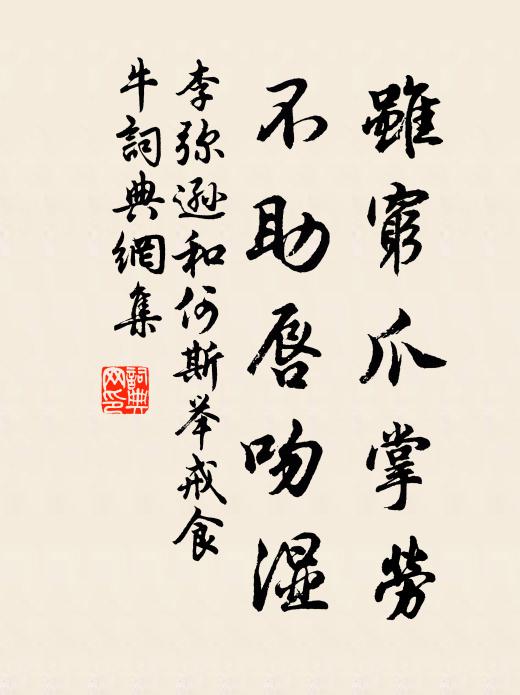 雖窮爪掌勞
不助唇吻濕
李弥遜和何斯举戒食
牛詞典網集
詞典网印